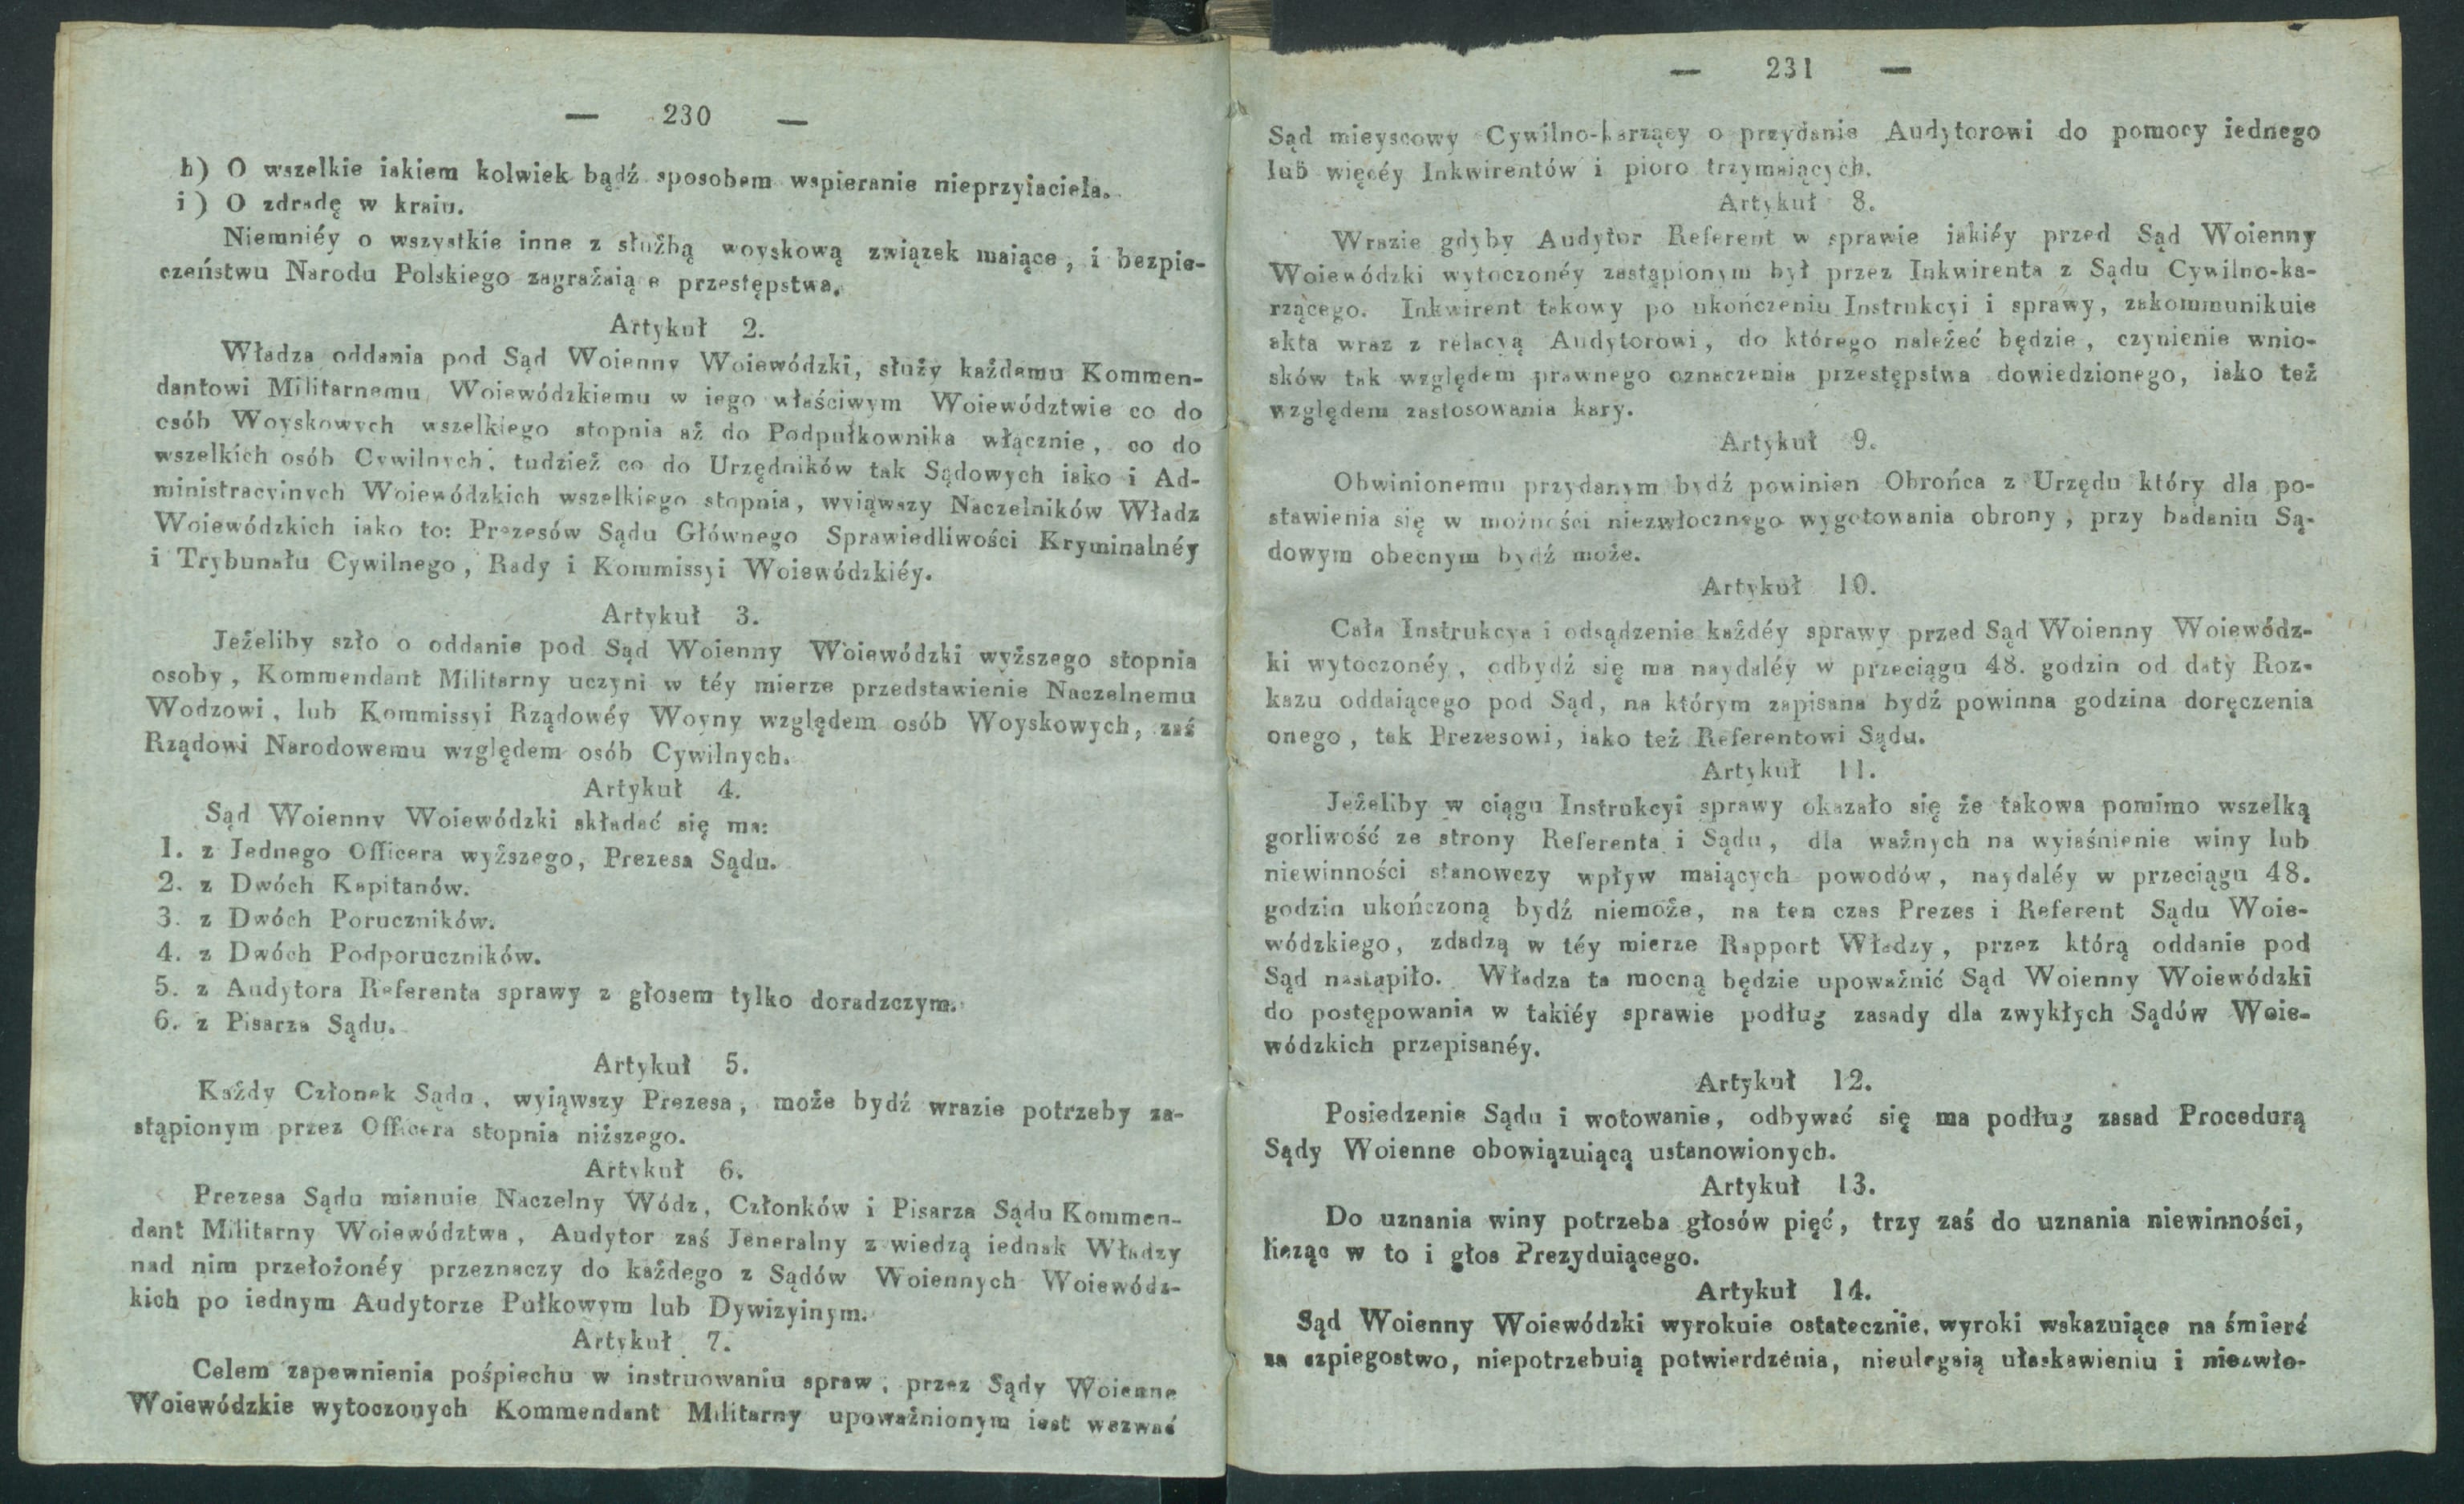 — 230 —
h) O wszelkie iakiem kolwiek bądź sposobem wspieranie nieprzyiaciela.
i) O zdradę w kraiu.
Niemniéy o wszystkie inne z służbą woyskową związek maiące, i bezpie-
czeństwu Narodu Polskiego zagrażaiące przestępstwa.
Artykuł 2.
Władza oddania pod Sąd Woienny Woiewódzki, służy każdemu Kommen-
dantowi Militarnemu Woiewódzkiemu w iego właściwym Woiewództwie co do
osób Woyskowych wszelkiego stopnia aż do Podpułkownika włącznie, co do
wszelkich osób Cywilnych, tudzież co do Urzędników tak Sądowych iako i Ad-
ministracyinych Woiewódzkich wszelkiego stopnia, wyiąwszy Naczelników Władz
Woiewódzkich iako to: Prezesów Sądu Głównego Sprawiedliwości Kryminalnéy
i Trybunału Cywilnego, Rady i Kommissyi Woiewódzkiéy.
Artykuł 3.
Jeżeliby szło o oddanie pod Sąd Woienny Woiewódzki wyższego stopnia
osoby, Kommendant Militarny uczyni w téy mierze przedstawienie Naczelnemu
Wodzowi, lub Kommissyi Rządowéy Woyny względem osób Woyskowych, zaś
Rządowi Narodowemu względem osób Cywilnych.
Artykuł 4.
Sąd Woienny Woiewódzki składać się ma:
1. z Jednego Officera wyższego, Prezesa Sądu.
2. z Dwóch Kapitanów.
3. z Dwóch Poruczników.
4. z Dwóch Podporuczników.
5. z Audytora Referenta sprawy z głosem tylko doradzczym.
6. z Pisarza Sądu.
Artykuł 5.
Każdy Członek Sądu, wyiąwszy Prezesa, może bydź wrazie potrzeby za-
stąpionym przez Officera stopnia niższego.
Artykuł 6.
Prezesa Sądu mianuie Naczelny Wódz, Członków i Pisarza Sądu Kommen-
dant Militarny Woiewództwa, Audytor zaś Jeneralny z wiedzą iednak Władzy
nad nim przełożonéy przeznaczy do każdego z Sądów Woiennych Woiewódz-
kich po iednym Audytorze Pułkowym lub Dywizyinym.
Artykuł 7.
Celem zapewnienia pośpiechu w instruowaniu spraw, przez Sądy Woienne
Woiewódzkie wytoczonych Kommendant Militarny upoważnionym iest wezwać
— 231 —
Sąd mieyscowy Cywilno-karzący o przydanie Audytorowi do pomocy iednego
lub więcéy Inkwirentów i pioro trzymaiących.
Artykuł 8.
Wrazie gdyby Audytor Referent w sprawie iakiéy przed Sąd Woienny
Woiewódzki wytoczonéy zastąpionym był przez Inkwirenta z Sądu Cywilno-ka-
rzącego. Inkwirent takowy po ukończeniu Instrukcyi i sprawy, zakommunikuie
akta wraz z relacyą Audytorowi, do którego należeć będzie, czynienie wnio-
sków tak względem prawnego oznaczenia przestępstwa dowiedzionego, iako też
względem zastosowania kary.
Artykuł 9.
Obwinionemu przydanym bydź powinien Obrońca z Urzędu który dla po-
stawienia się w możności niezwłocznego wygotowania obrony, przy badaniu Są-
dowym obecnym bydź może.
Artykuł 10.
Cała Instrukcya i odsądzenie każdéy sprawy przed Sąd Woienny Woiewódz-
ki wytoczonéy, odbydź się ma naydaléy w przeciągu 48. godzin od daty Roz-
kazu oddaiącego pod Sąd, na którym zapisana bydź powinna godzina doręczenia
onego, tak Prezesowi, iako też Referentowi Sądu.
Artykuł 11.
Jeżeliby w ciągu Instrukcyi sprawy okazało się że takowa pomimo wszelką
gorliwość ze strony Referenta i Sądu, dla ważnych na wyiaśnienie winy lub
niewinności stanowczy wpływ maiących powodów, naydaléy w przeciągu 48.
godzin ukończoną bydź niemoże, na ten czas Prezes i Referent Sądu Woie-
wódzkiego, zdadzą w téy mierze Rapport Władzy, przez którą oddanie pod
Sąd nastąpiło. Władza ta mocną będzie upoważnić Sąd Woienny Woiewódzki
do postępowania w takiéy sprawie podług zasady dla zwykłych Sądów Woie-
wódzkich przepisanéy.
Artykuł 12.
Posiedzenie Sądu i wotowanie, odbywać się ma podług zasad Procedurą
Sądy Woienne obowiązuiącą ustanowionych.
Artykuł 13.
Do uznania winy potrzeba głosów pięć, trzy zaś do uznania niewinności,
licząc w to i głos Prezyduiącego.
Artykuł 14.
Sąd Woienny Woiewódzki wyrokuie ostatecznie, wyroki wskazuiące na śmierć
za szpiegostwo, niepotrzebuią potwierdzenia, nieulegaią ułaskawieniu i niezwło-